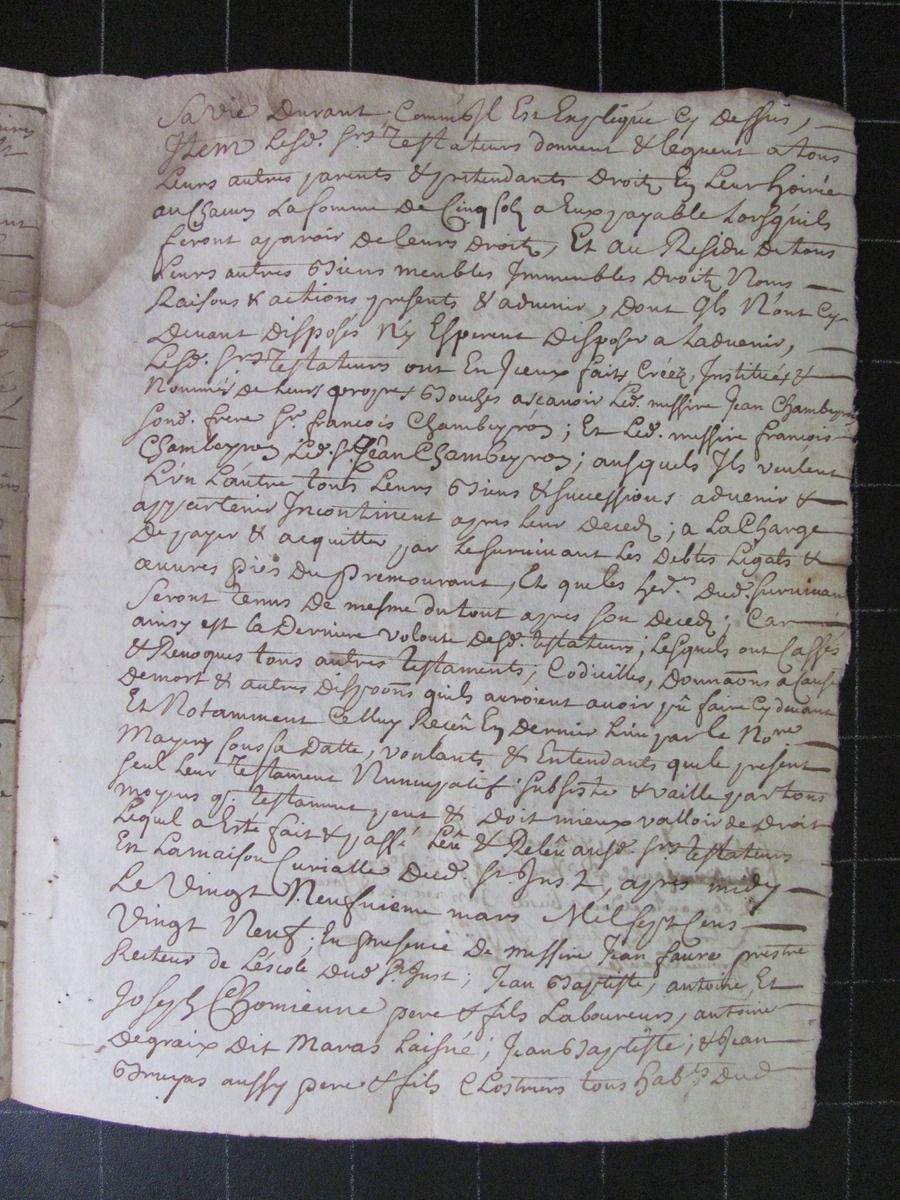 Sa vie Durant Comm'Il Est Expliqué Cy Dessus,
Item Lesd. Srs Testateurs donnent & leguent a tous
Leurs autres parents & pretendants Droitz En Leur hoirie
auChacun La somme De Cinq solz a Eux payable Lorsqu'ils
feront aparoir de leurs Droitz, Et au Residu De tous
Leurs autres Biens meubles Immeubles Droitz Noms
Raisons & actions presents & advenir, Dont Ils N'ont Cy
Devant Disposés N'y Esperent Disposer a Ladvenir,
Lesd. Srs Testateurs ont En Iceux faitz, Créez, Instituéz &
Nomméz de Leurs propres Bouches ascavoir Led. messire Jean Chambeyron
sond. frere Sr. françois Chambeyron; Et Led. messire françois
Chambeyron Led. Sr. Jean Chambeyron; ausquels Ils veulent
L'un L'autre tous Leurs Biens & successions advenir &
appartenir Incontinent apres leur Decedz; a LaCharge
De payer & acquitter par Le survivant Les Debtes Légats &
œuvres piés Du premourant, Et que les hers. Dud. survivant
Seront Tenus De mesme du tout apres son Decedz; Car
ainsy est la Derniere volonté Desd. testateurs; Lesquels ont Cassés
& Revoqués tous autres Testaments, Codicilles, Donnaons a Cause
De mort & autres Dispoons quils auroient avoir pû faire Cy devant
Et Notamment Celluy Receu En Dernier Lieu par le Nore
Mayery sous sa Datte, voulants & Entendants que le present
seul Leur Testament Nuncupatif subsiste & vaille par tous
moyens qe. Testament peut & Doit mieux valloir de Droit
Lequel a Esté fait & passé Leu & Releu ausd. Srs Testateurs
En La maison Curialle Dud. St. Just, apres midy
Le Vingt Neufvieme mars Mil sept Cens
Vingt Neuf; En presence De messire Jean faure prestre
Recteur de L'escole Dud. St. Just; Jean Baptiste, antoine, Et
Joseph Chomienne pere & fils Laboureurs, antoine
Degraix Dit Maras Laisné; Jean Baptiste; & Jean
Bruyas aussy pere & fils Clostriers tous habts. Dud